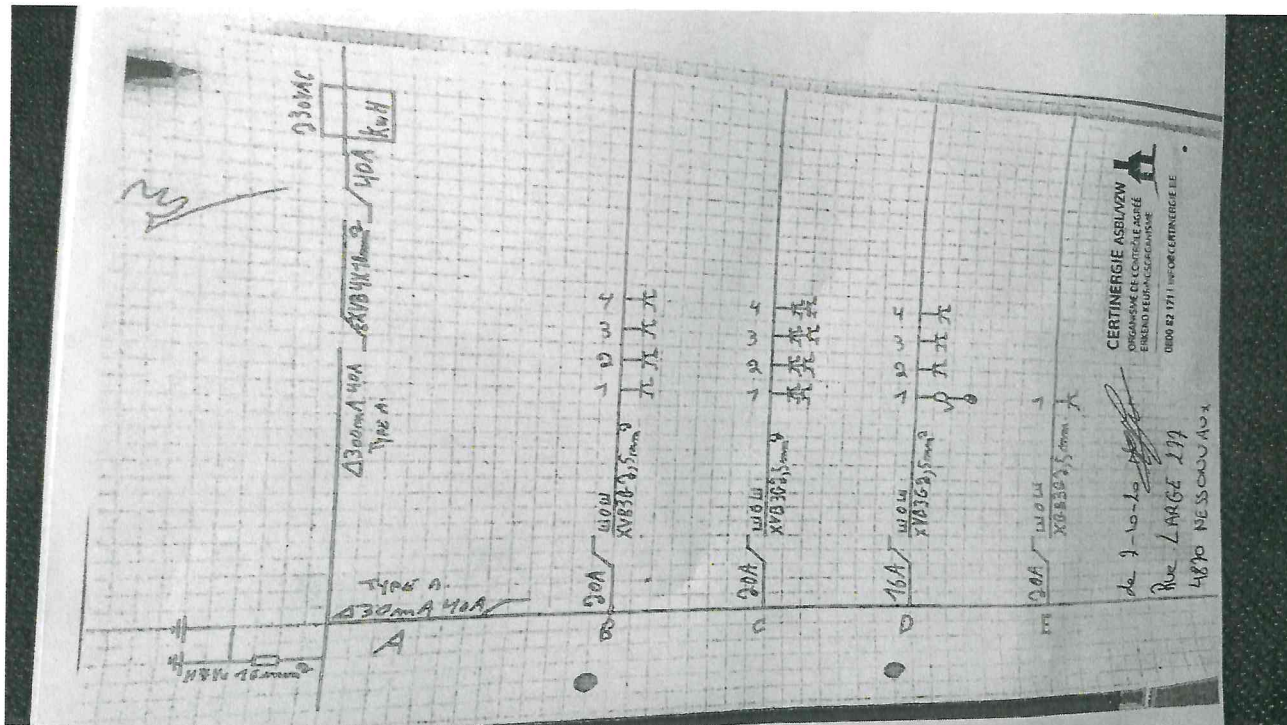 230VAC
KWH
40A
EXVB 4X10mm²
Δ300mA 40A
TYPE A.
TYPE A.
Δ30mA 40A
A
B
20A
XVB3G2,5mm²
1 2 3 4
C
20A
XVB3G2,5mm²
1 2 3 4
D
16A
XVB3G2,5mm²
1 2 3 4
E
20A
XVB3G2,5mm
1
CERTINERGIE ASBL/VZW
ORGANISME DE CONTRÔLE AGRÉÉ
ERKEND KEURINGSORGANISME
0800 82 171 | INFO@CERTINERGIE.BE
Rue LARGE 277
4870 NESSONVAUX